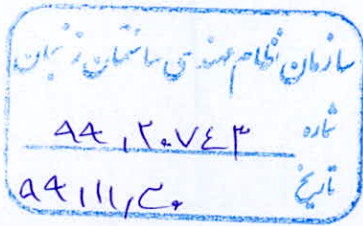 سازمان نظام مهندسی ساختمان زنجان
شماره ۹۴,۲۰۷۴۳
تاریخ ۹۴,۱۱,۲۰